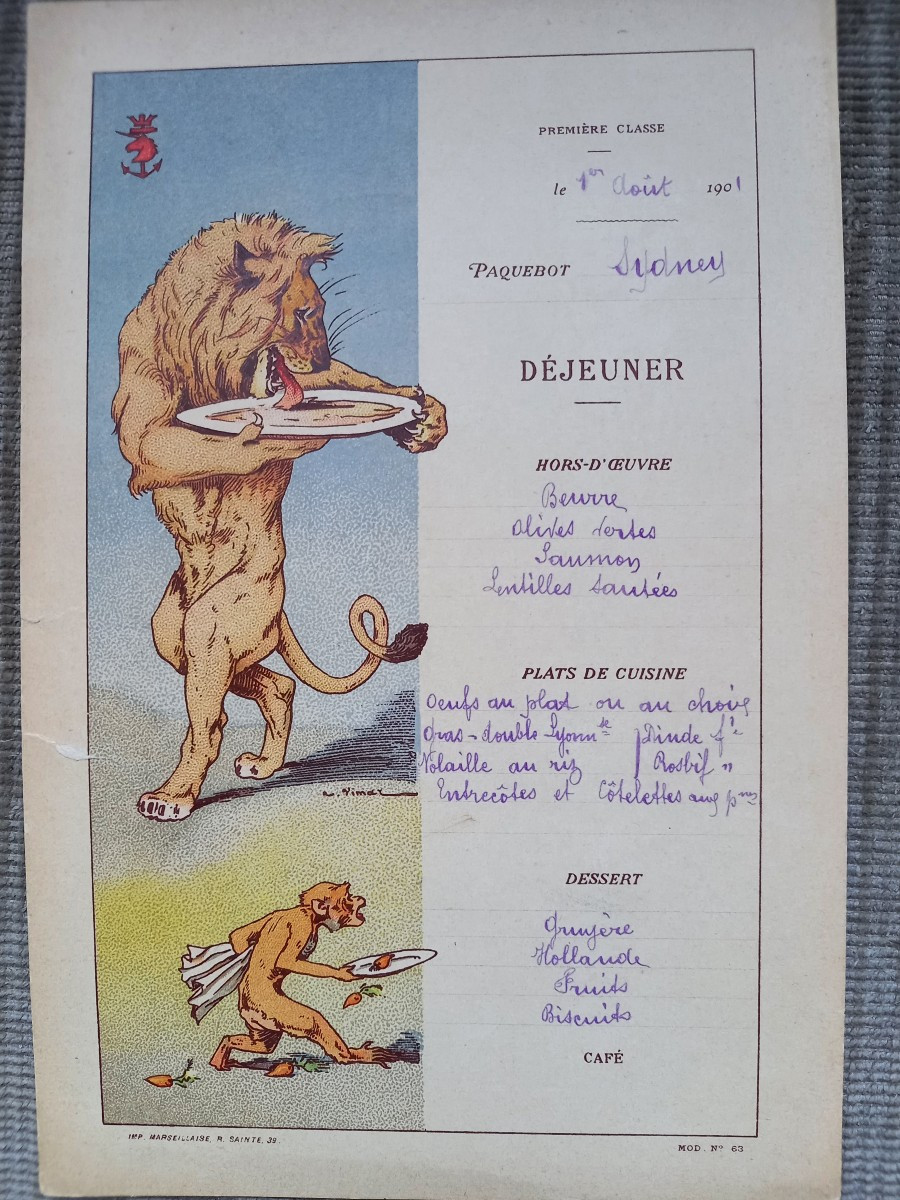 PREMIÈRE CLASSE
le 1er Août 1901
PAQUEBOT Sydney
DÉJEUNER
HORS-D'ŒUVRE
Beurre
Olives Vertes
Saumon
Lentilles Sautées
PLATS DE CUISINE
Oeufs au plat ou au choix
Gras-double Lyonn se Dinde
Volaille au riz Rosbif "
Entrecôtes et Côtelettes aux pmes
DESSERT
Gruyère
Hollande
Fruits
Biscuits
CAFÉ
A. Vimar
IMP. MARSEILLAISE, R. SAINTE, 39.
MOD. No 63